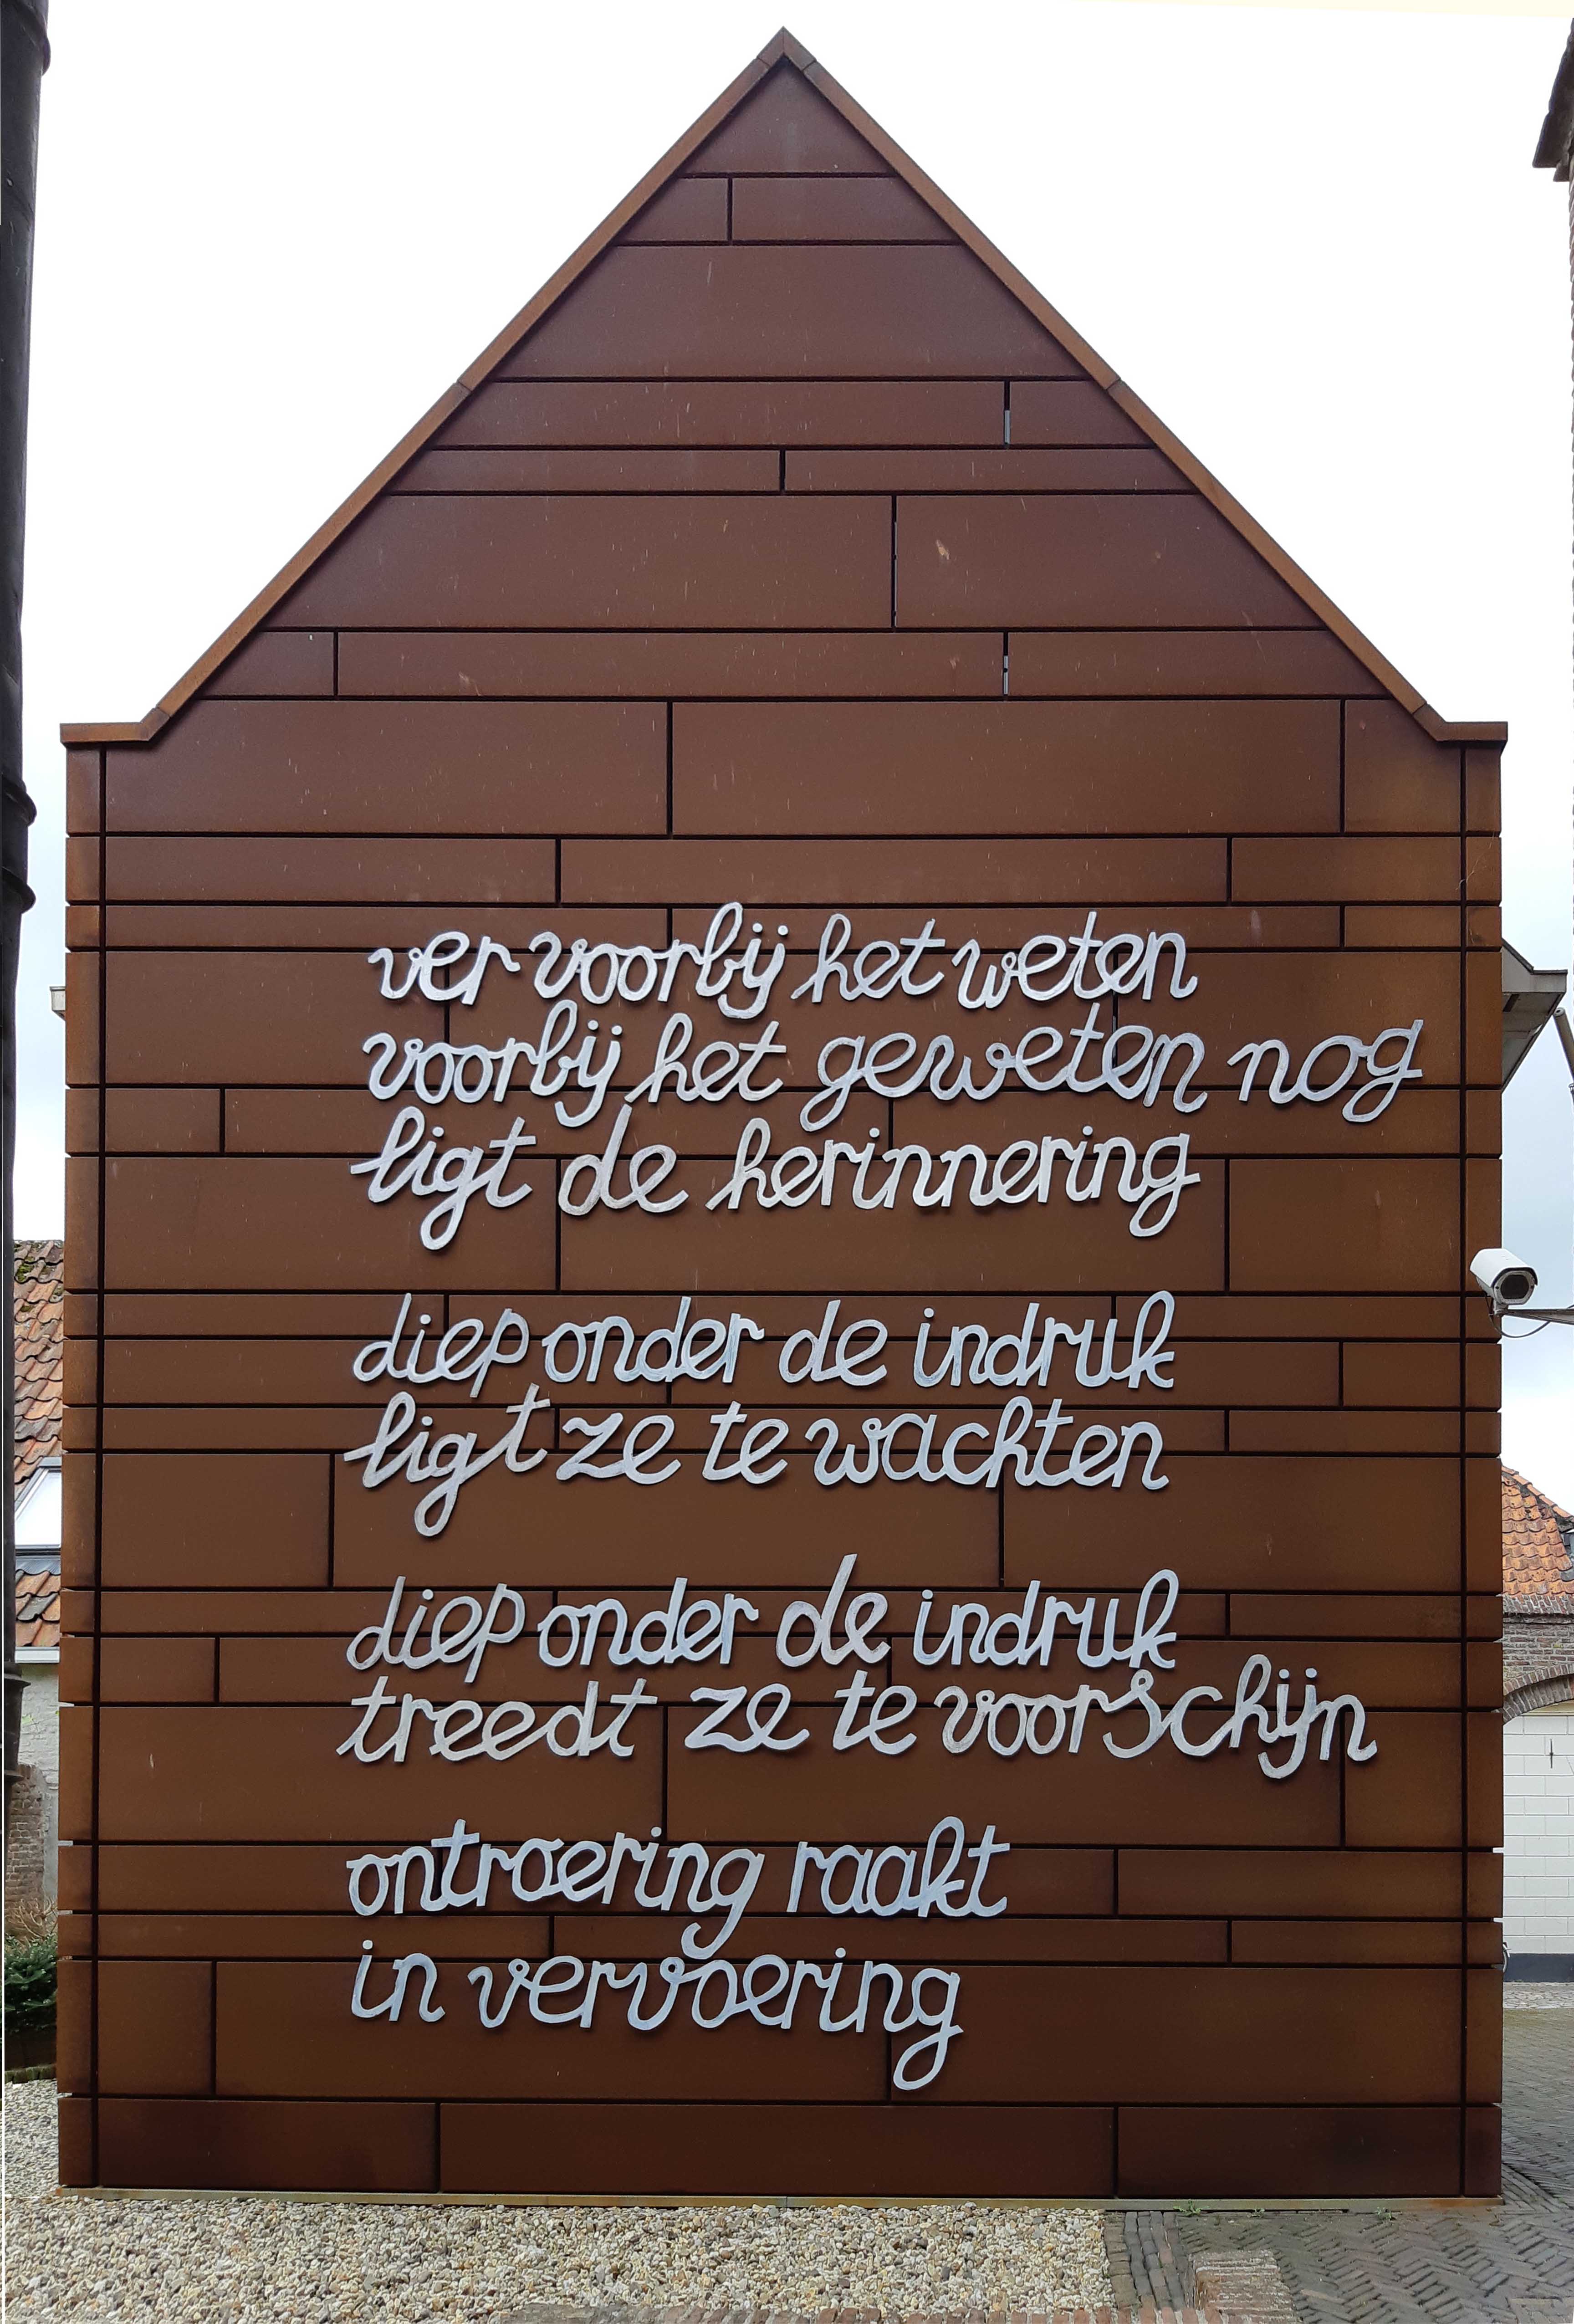 ver voorbij het weten
voorbij het geweten nog
ligt de herinnering
diep onder de indruk
ligt ze te wachten
diep onder de indruk
treedt ze te voorschijn
ontroering raakt
in vervoering